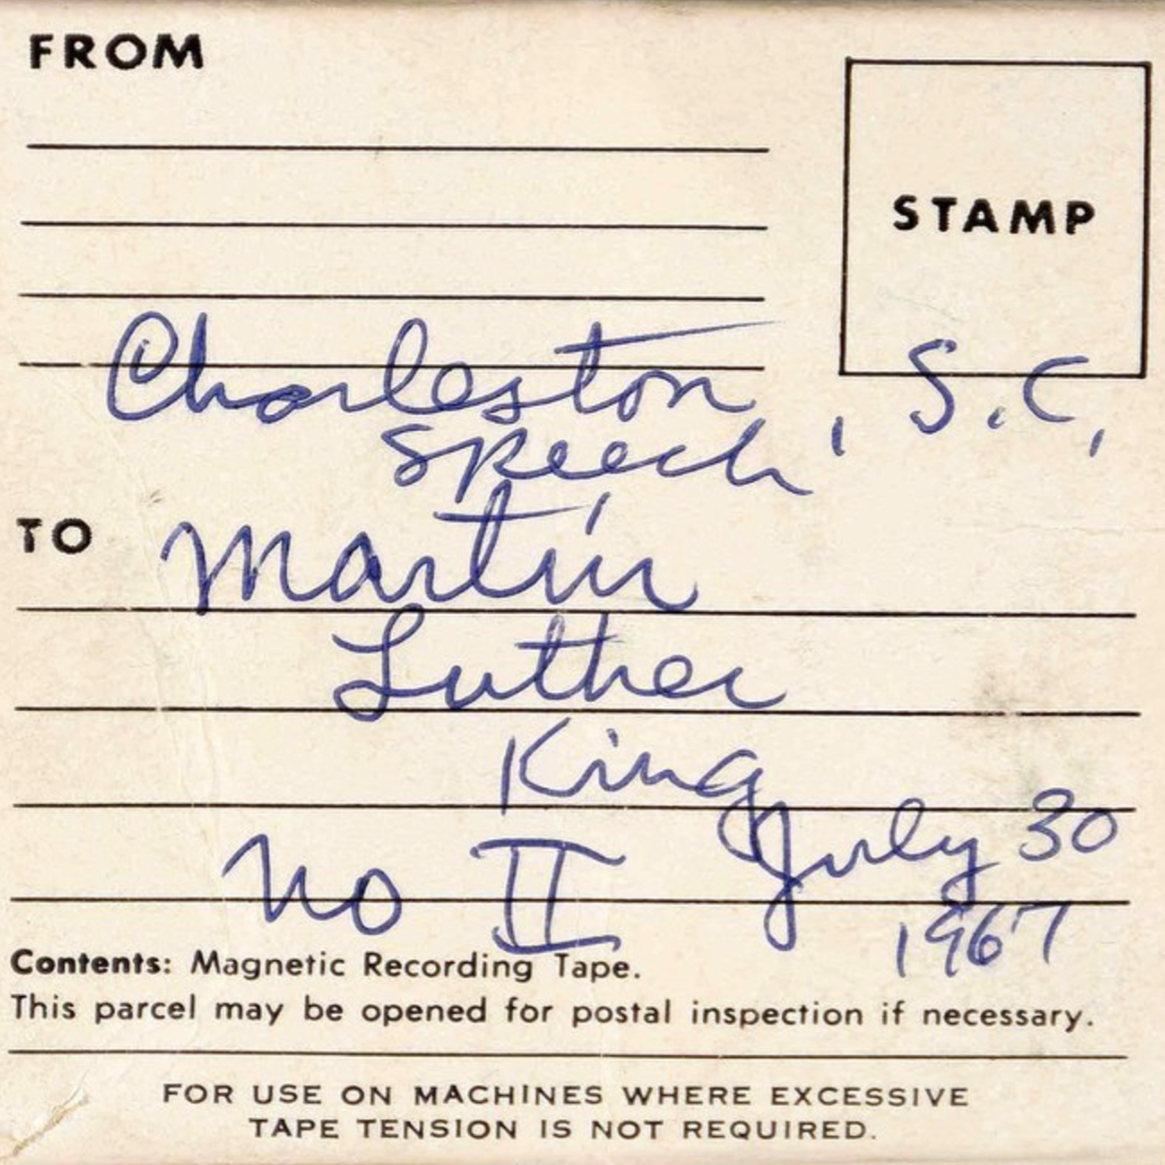 FROM
STAMP
Charleston, S.C,
speech
TO Martin
Luther
King
July 30
No II
1967
Contents: Magnetic Recording Tape.
This parcel may be opened for postal inspection if necessary.
FOR USE ON MACHINES WHERE EXCESSIVE
TAPE TENSION IS NOT REQUIRED.